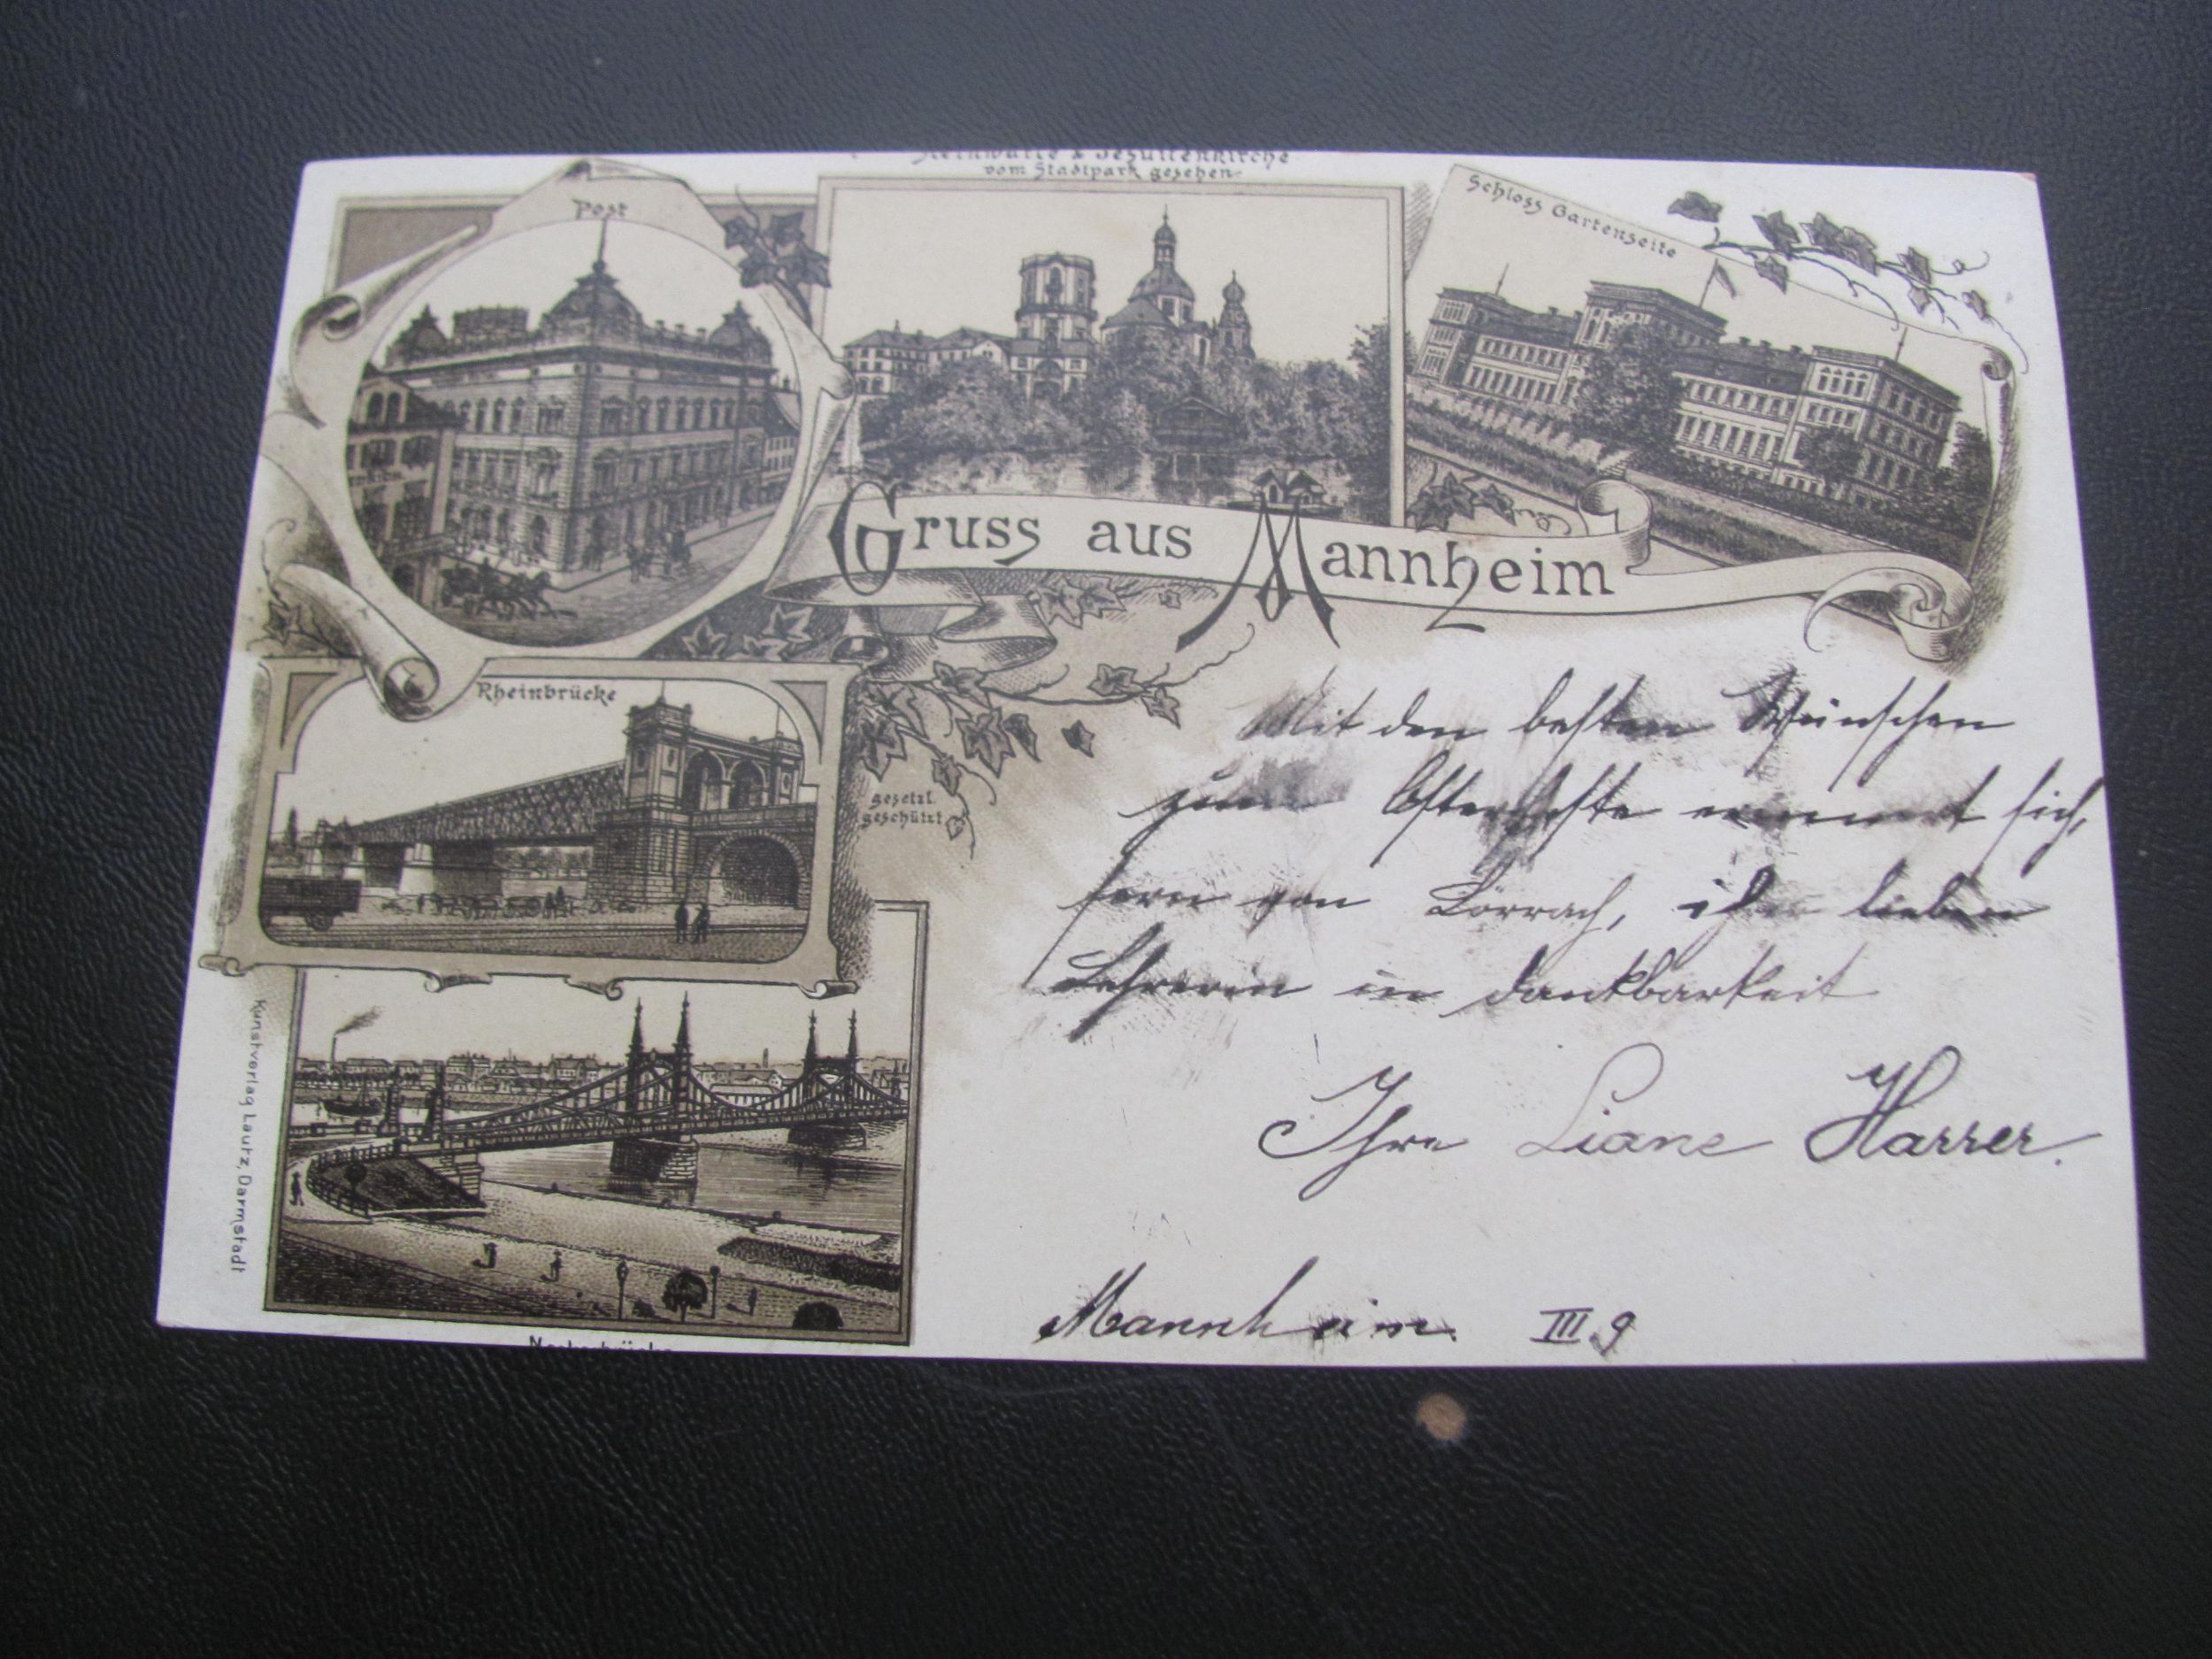 & Jesuitenkirche
vom Stadtpark gesehen
Post
Schloss Gartenseite
Gruss aus Mannheim
Rheinbrücke
gesetzl.
geschützt
Kunstverlag Lautz, Darmstadt
Neckarbrücke
Mit den besten Wünschen
zum Osterfeste erinnert sich,
fern von Lörrach, ihrer lieben
Lehrerin in Dankbarkeit
Ihre Liane Harrer.
Mannheim. III 9